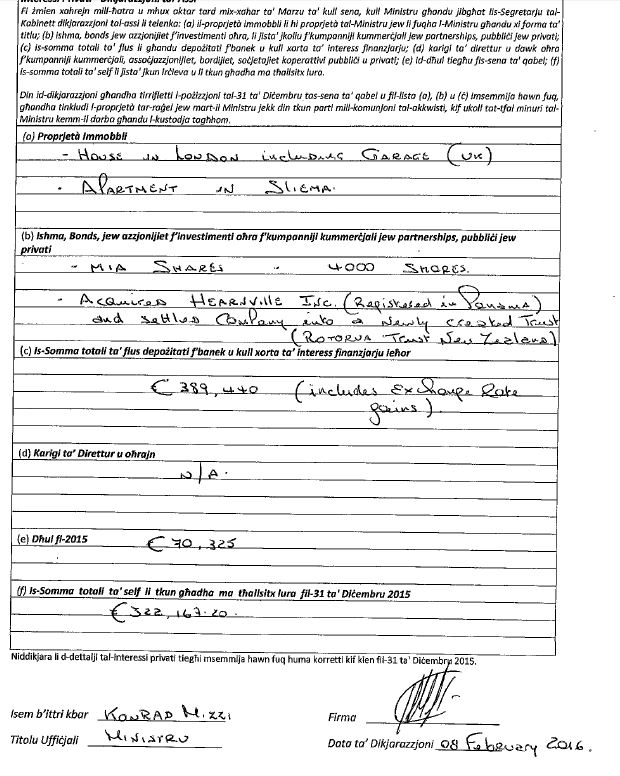 Fi żmien xahrejn mill-ħatra u mhux aktar tard mix-xahar ta' Marzu ta' kull sena, kull Ministru għandu jibgħat lis-Segretarju tal-
Kabinett dikjarazzjoni tal-assi li telenka: (a) il-proprjetà immobbli li hi proprjetà tal-Ministru jew li fuqha l-Ministru għandu xi forma ta'
titlu; (b) ishma, bonds jew azzjonijiet f'investimenti oħra, li jista' jkollu f'kumpanniji kummerċjali, pubbliċi jew privati;
(c) is-somma totali ta' flus li għandu depożitati f'bank u kull xorta ta' interess finanzjarju; (d) karigi ta' direttur u dawk oħra
f'kumpanniji kummerċjali, assoċjazzjonijiet, bordijiet, soċjetajiet koperattivi pubbliċi u privati; (e) id-dħul tiegħu fis-sena ta' qabel; (f)
is-somma totali ta' self li jista' jkun irċieva u li tkun għadha ma tħallsitx lura.
Din id-dikjarazzjoni għandha tirrifletti l-pożizzjoni tal-31 ta' Diċembru tas-sena ta' qabel u fil-lista (a), (b) u (ċ) imsemmija hawn fuq,
għandha tinkludi l-proprjetà tar-raġel jew mart il-Ministru jekk din tkun parti mill-komunjoni tal-akkwisti, kif ukoll tat-tfal minuri tal-
Ministru kemm-il darba għandu l-kustodja tagħhom.
(a) Proprjetà Immobbli
- House in London including Garage (UK)
- Apartment in Sliema.
(b) Ishma, Bonds, jew azzjonijiet f'investimenti oħra f'kumpanniji kummerċjali jew partnerships, pubbliċi jew
privati
- MIA Shares - 4000 Shares.
- Acquired Hearnville Inc. (Registered in Panama)
and settled Company into a newly created Trust
(Rotorua Trust New Zealand)
(c) Is-Somma totali ta' flus depożitati f'bank u kull xorta ta' interess finanzjarju ieħor
€ 389,440 (includes Exchange Rate
gains).
(d) Karigi ta' Direttur u oħrajn
N/A.
(e) Dħul fl-2015 € 70,325
(f) Is-Somma totali ta' self li tkun għadha ma tħallsitx lura fil-31 ta' Diċembru 2015
€ 322,167.20.
Niddikjara li d-dettalji tal-interessi privati tiegħi msemmija hawn fuq huma korretti kif kien fil-31 ta' Diċembru 2015.
Isem b'ittri kbar KONRAD MIZZI Firma
Titolu Uffiċjali MINISTRU Data ta' Dikjarazzjoni 08 February 2016.